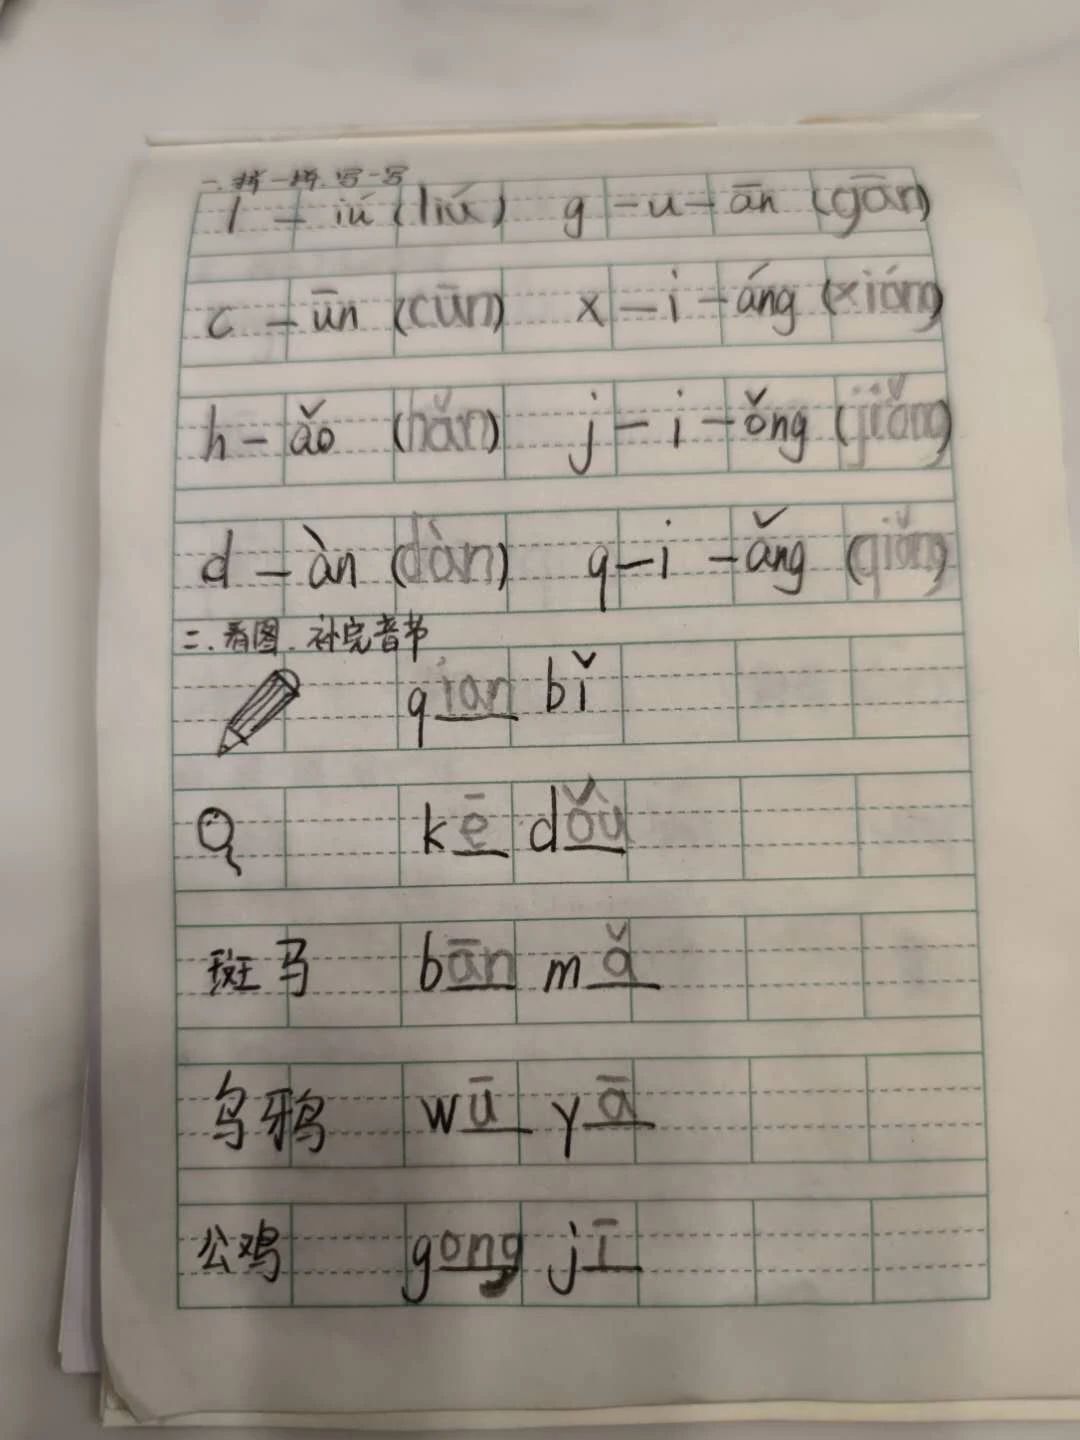 一.拼一拼.写一写
l — iú (liú) g — u — ān (gān)
c — ūn (cūn) x — i — áng (xiáng)
h — ǎo (hǎn) j — i — ǒng (jiǒng)
d — àn (dàn) q — i — ǎng (qiǎng)
二.看图.补完音节
qian bǐ
kē dǒu
斑马 bān mǎ
乌鸦 wū yā
公鸡 gong jī